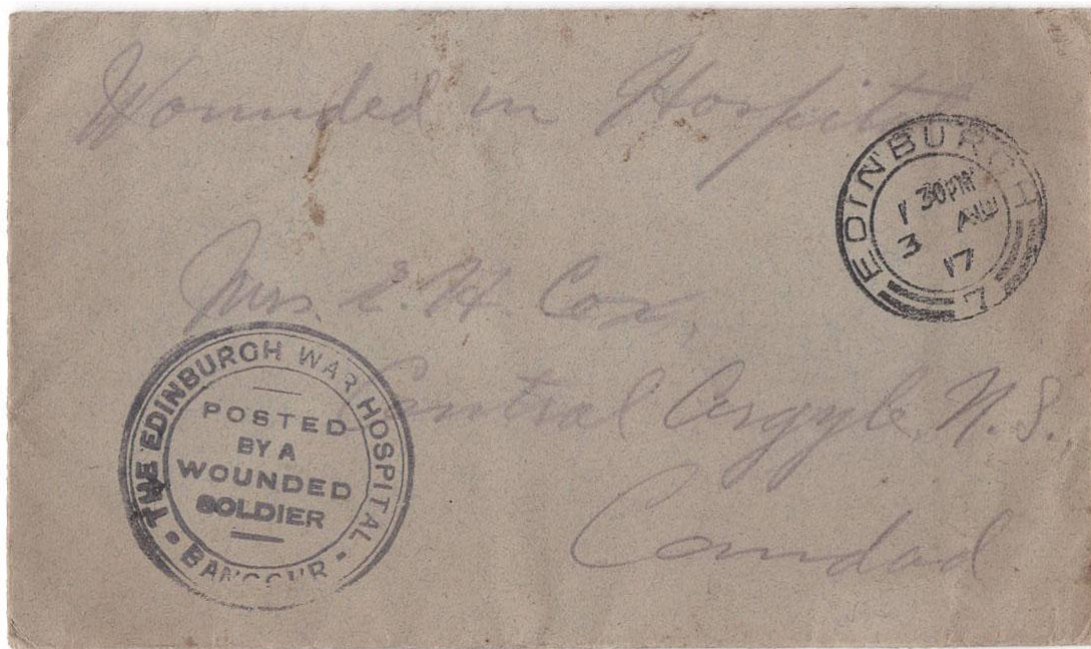 Wounded in Hospital
EDINBURGH
1 30PM
3 AU
17
7
Mrs. E. H Cox,
Central Argyle, N. S.,
Candad.
THE EDINBURGH WAR HOSPITAL
POSTED
BY A
WOUNDED
SOLDIER
BANGOUR